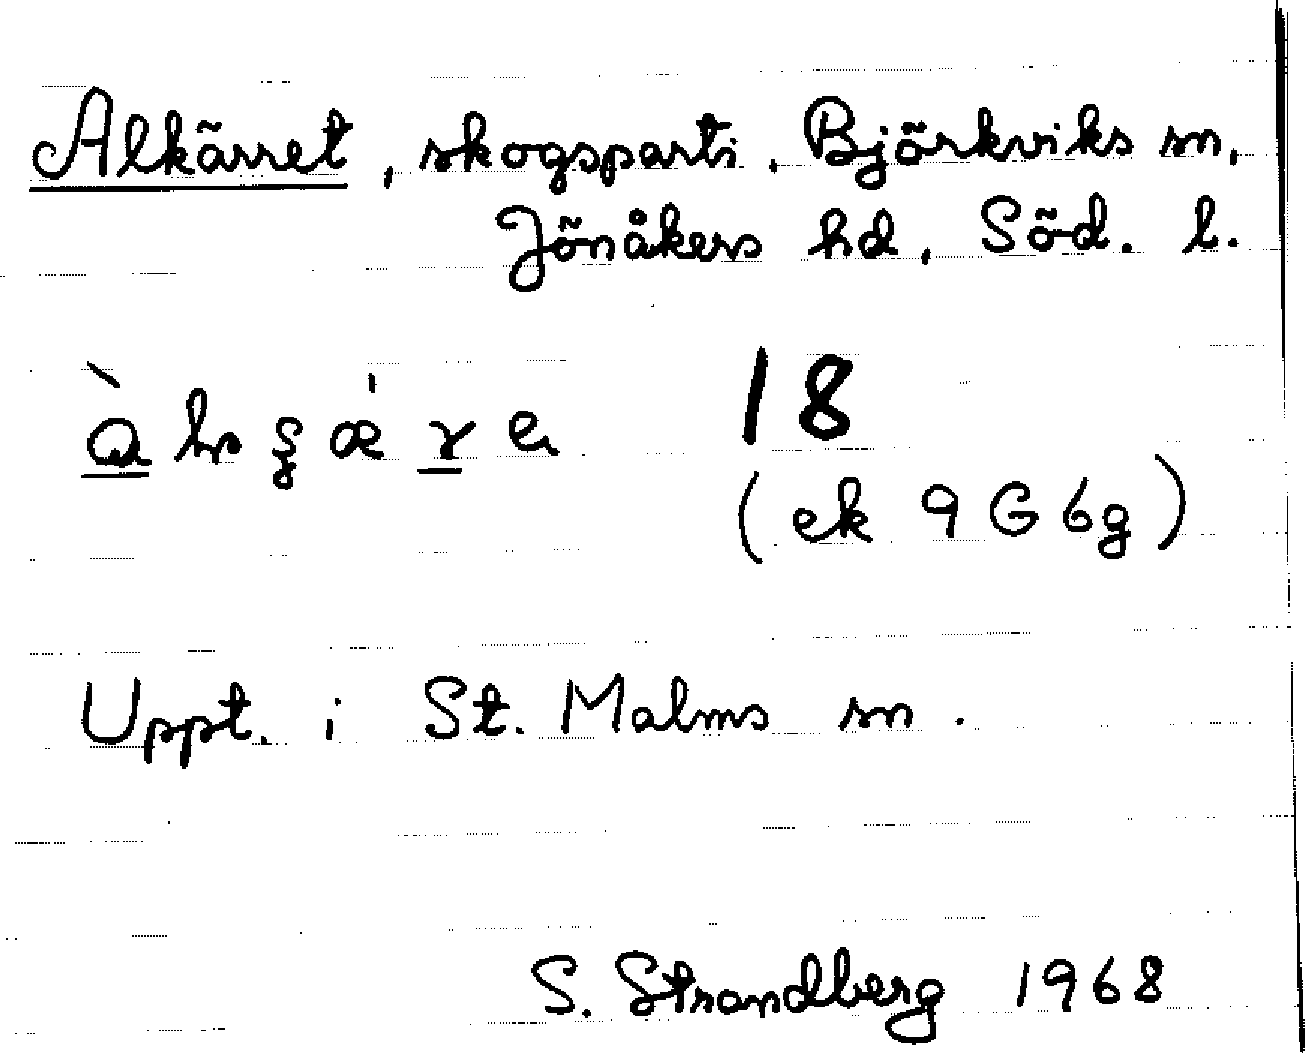 Alkärret, skogsparti, Björkviks sn,
Jönåkers hd, Söd. l.
18
(ek 9G 6g)
Uppt. i St. Malms sn.
S. Strandberg 1968